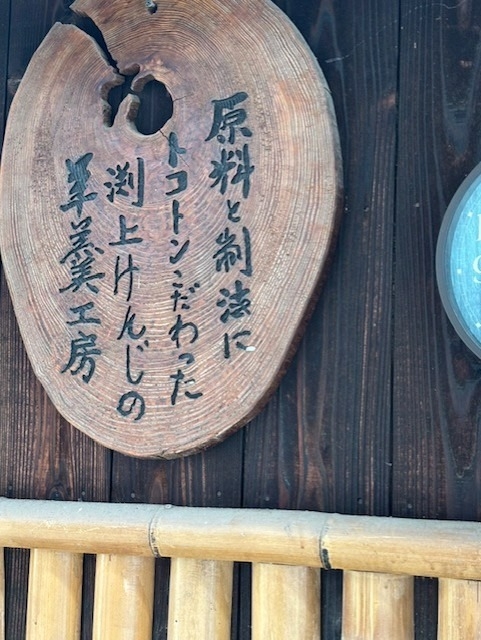 原料と制法に
トコトンこだわった
渕上けんじの
羊羹工房